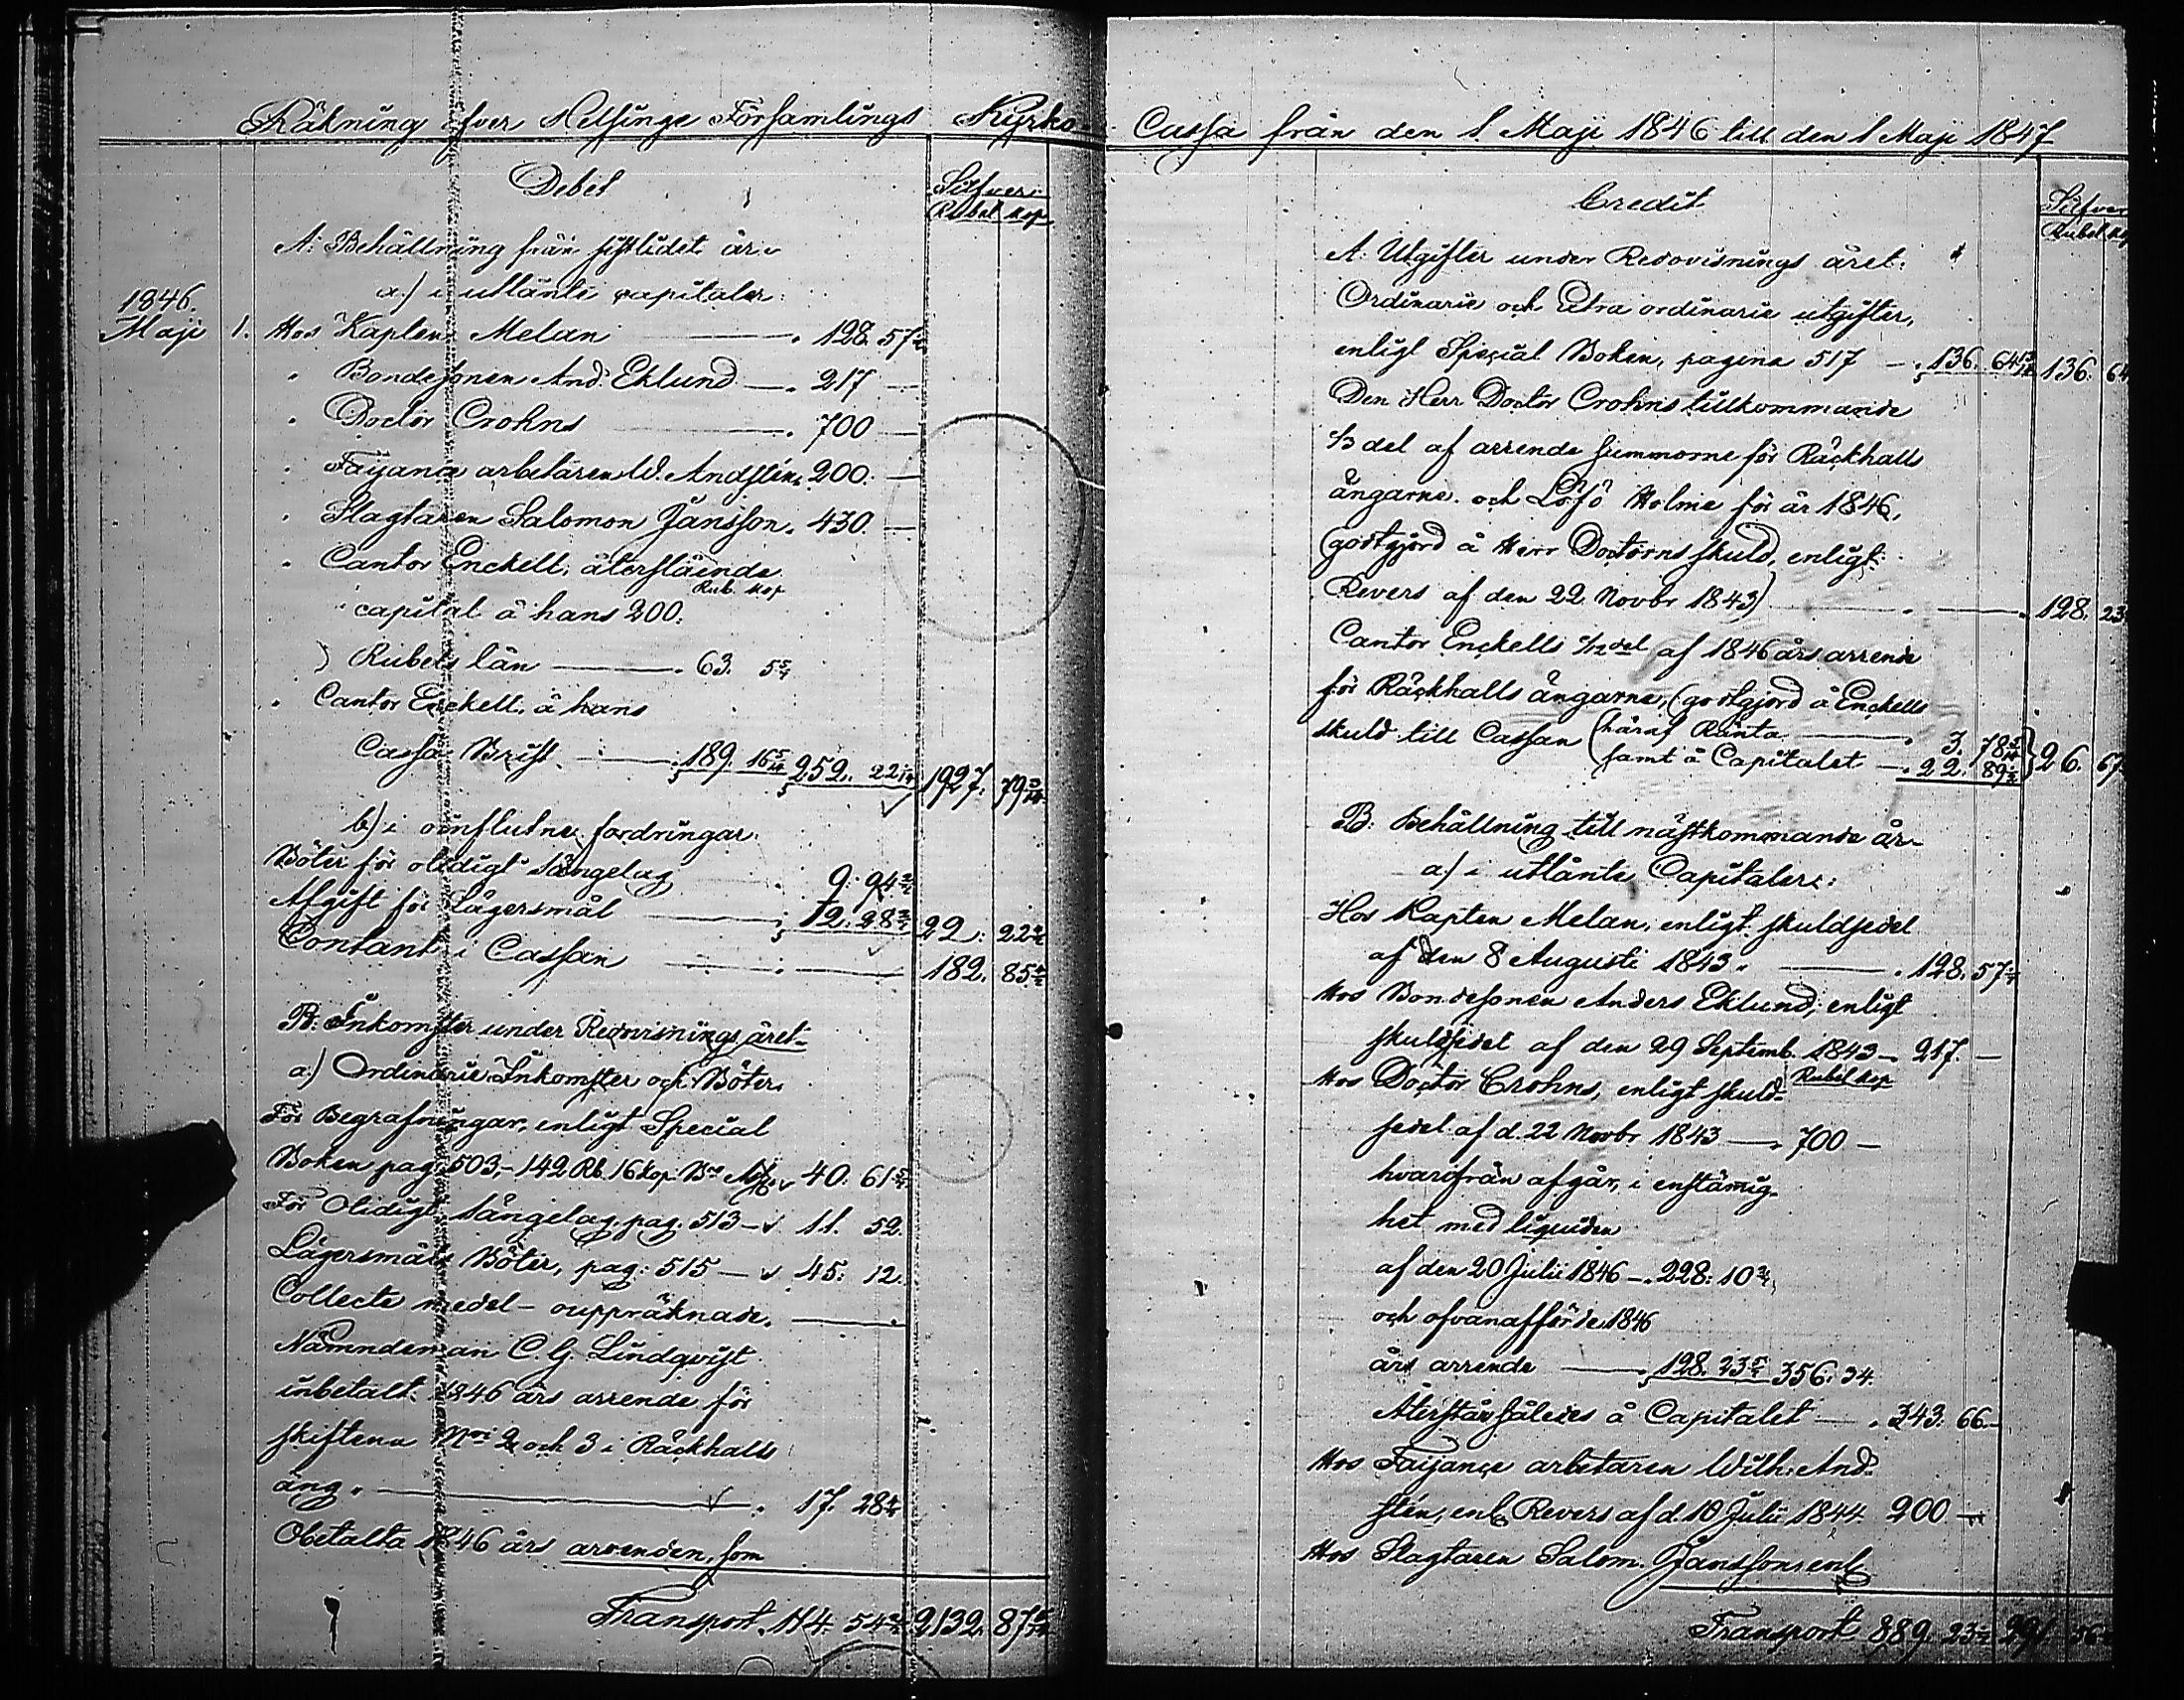 Räkning öfver Helsinge Församlings Kyrko-
Debet
Silfver
Rubel kop
A: Behållning från sistlidet år
a) i utlånte capitaler:
1846.
Maji 1. Hos Kapten Melan 128. 57
" Bondesonen And. Eklund 217 —
" Doctor Crohns 700 —
" Fayance arbetaren W. Andstén 200. —
" Slagtaren Salomon Jansson 430. —
" Cantor Enckell, återstående
Rub. kop
capital å hans 200.
Rubels lån 63. 5
" Cantor Enckell, å hans
Cassa Brist 189. 16 252. 22 1927. 79
b) i oinflutne fordringar.
Böter för olidigt sängelag 9. 94
Afgift för Lägersmål 12. 28 22. 22
Contant i Cassan 182. 85
B: Inkomster under Redovisnings året
a) Ordinarie Inkomster och Böter
För Begrafningar, enligt Special
Boken pag. 503, 142 Rb. 16 kop. 40. 61
För Olidigt sängelag, pag. 513 — 11. 52.
Lägersmåls Böter, pag: 515 — 45: 12.
Collecte medel — ouppräknade. —
Nämndeman C. G. Lindqvist
inbetalt 1846 års arrende för
skiftena Nri 2 och 3 i Räckhalls
äng. 17. 28
Obetalta 1846 års arrenden, som
Transport. 114. 54 2132. 87
Cassa från den 1 Maji 1846 till den 1 Maji 1847
Credit
Silfver
Rubel kop
A: Utgifter under Redovisnings året:
Ordinarie och Extra ordinarie utgifter,
enligt Special Boken, pagina 517 — 136. 64 136. 64
Den Herr Doctor Crohns tillkommande
1/3 del af arrende summorne för Räckhalls
ängarne och Löfö Holme för år 1846,
(godtgjord å Herr Doctorns skuld, enligt
Revers af den 22 Novbr 1843) 128. 23
Cantor Enckells 1/12 del af 1846 års arrende
för Räckhalls ängarne, (godtgjord å Enckells
skuld till Cassan (häraf Ränta 3. 78
samt å Capitalet — 22. 89 26. 67
B: Behållning till nästkommande år
a) i utlånte Capitaler:
Hos Kapten Melan, enligt skuldsedel
af den 8 Augusti 1843 128. 57
Hos Bondesonen Anders Eklund, enligt
skuldsedel af den 29 Septemb. 1843 — 217. —
Rubel kop
Hos Doctor Crohns, enligt skuld-
sedel af d. 22 Novbr 1843 — 700 —
hvarifrån afgår, i enstämmig-
het med liquiden
af den 20 Julii 1846 — 228: 10
och ofvanafförde 1846
års arrende 128. 23 356. 34.
Återstår således å Capitalet — 343. 66 —
Hos Fayance arbetaren Wilh. And-
stén, enl. Revers af d. 10 Julii 1844 200 —
Hos Slagtaren Salom. Jansson, enl.
Transport 889. 23 291 56